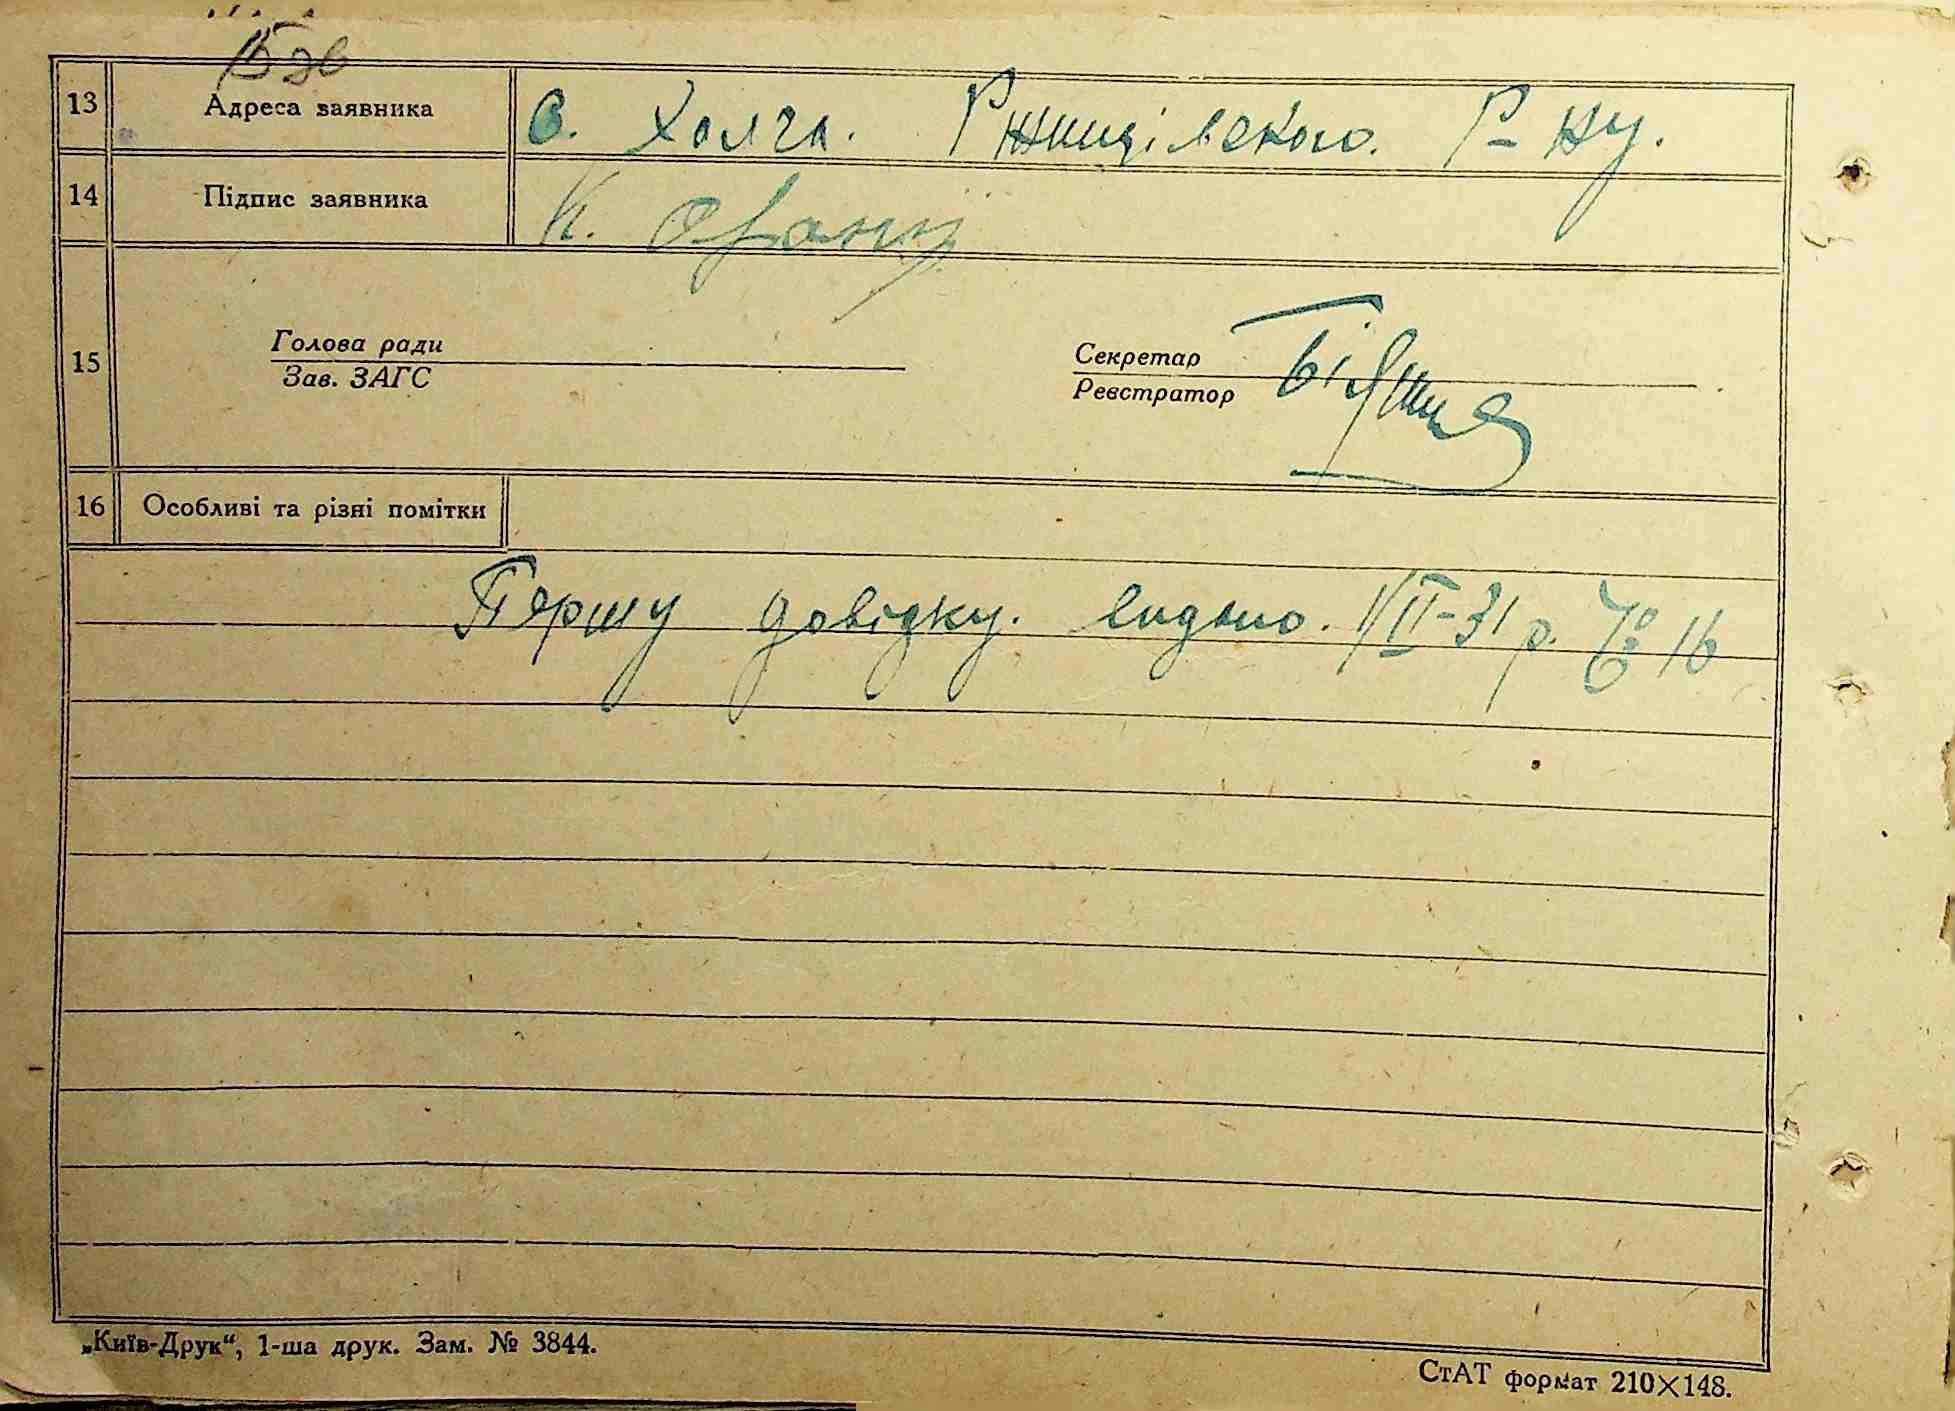 13 Адреса заявника С. Халча. Ржищівського. Р-ну.
14 Підпис заявника К.
15 Голова ради Секретар
Зав. ЗАГС Реєстратор
16 Особливі та різні помітки
Першу довідку. видано. 1/II-31 р. № 16
„Київ-Друк“, 1-ша друк. Зам. № 3844.
СтАТ формат 210×148.